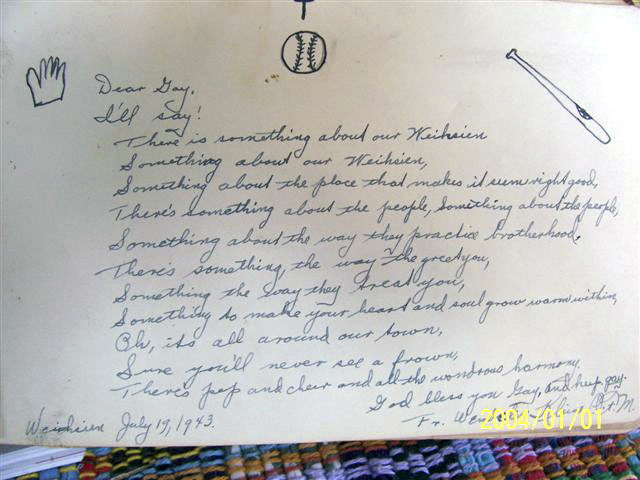 Dear Gay,
I'll say!
There is something about our Weihsien
Something about our Weihsien,
Something about the place that makes it seem right good,
There's something about the people, Something about the people,
Something about the way they practice brotherhood.
There's something, the way the greet you,
Something the way they treat you,
Something to make your heart and soul grow warm within,
Oh, its all around our town,
Sure you'll never see a frown,
There's pep and cheer and all the wondrous harmony.
God bless you Gay, and keep gay.
Weihsien July 19, 1943.
Fr.
2004/01/01